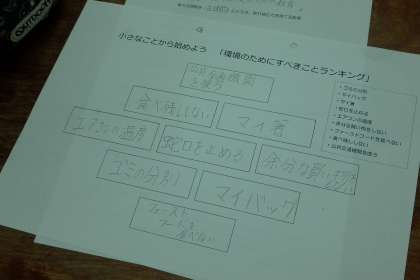 小さなことから始めよう 「環境のためにすべきことランキング」
公共交通機関
を使う
食べ残しない
マイ箸
エアコンの温度
蛇口を止める
余分な買い物を
しない
ゴミの分別
マイバッグ
ファースト
フードを
食べない
・ゴミの分別
・マイバッグ
・マイ箸
・蛇口を止める
・エアコンの温度
・余分な買い物をしない
・ファーストフードを食べない
・食べ残ししない
・公共交通機関を使う